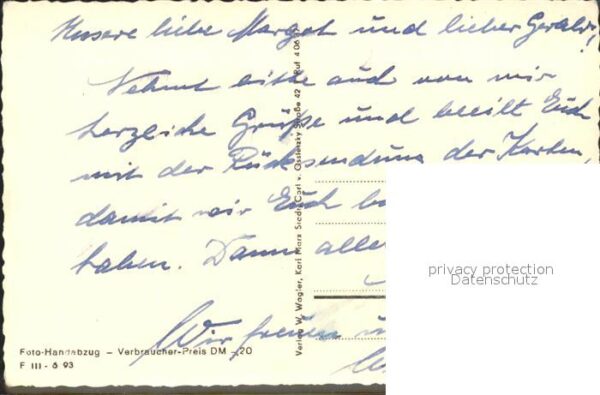 Unsere liebe Margot und lieber Gerald!
Nehmt bitte auch von mir
herzliche Grüße und beeilt Euch
mit der Rücksendung der Karten,
damit wir Euch
haben. Dann alle
Wir freuen
Foto-Handabzug – Verbraucher-Preis DM -,20
F III - 6 93
Verlag W. Wagler, Karl Marx Stadt, Carl v. Ossietzky Straße 42 Ruf
privacy protection
Datenschutz